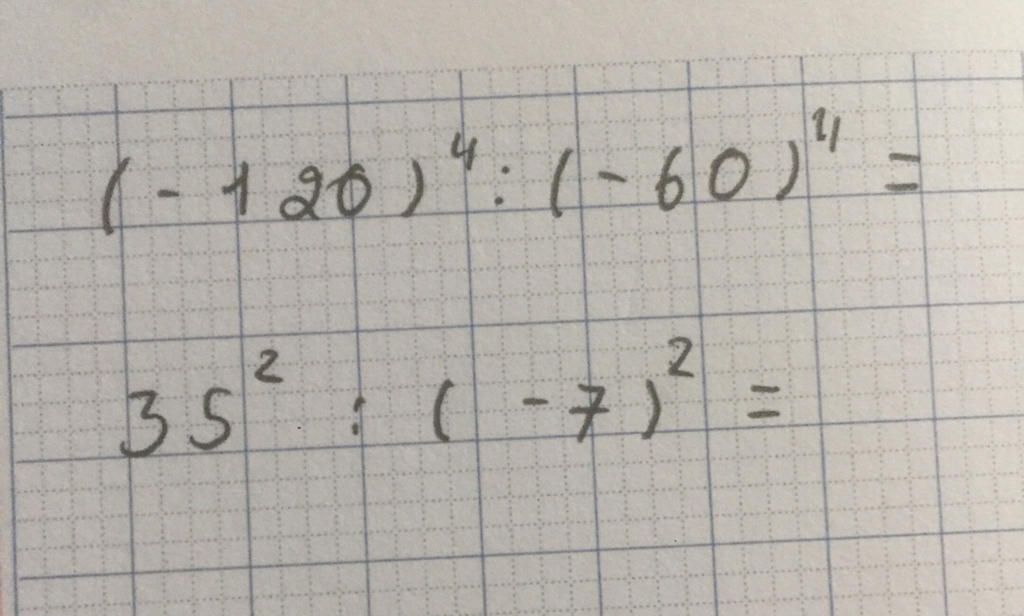 (-120)⁴:(-60)⁴=
35² : (-7)² =